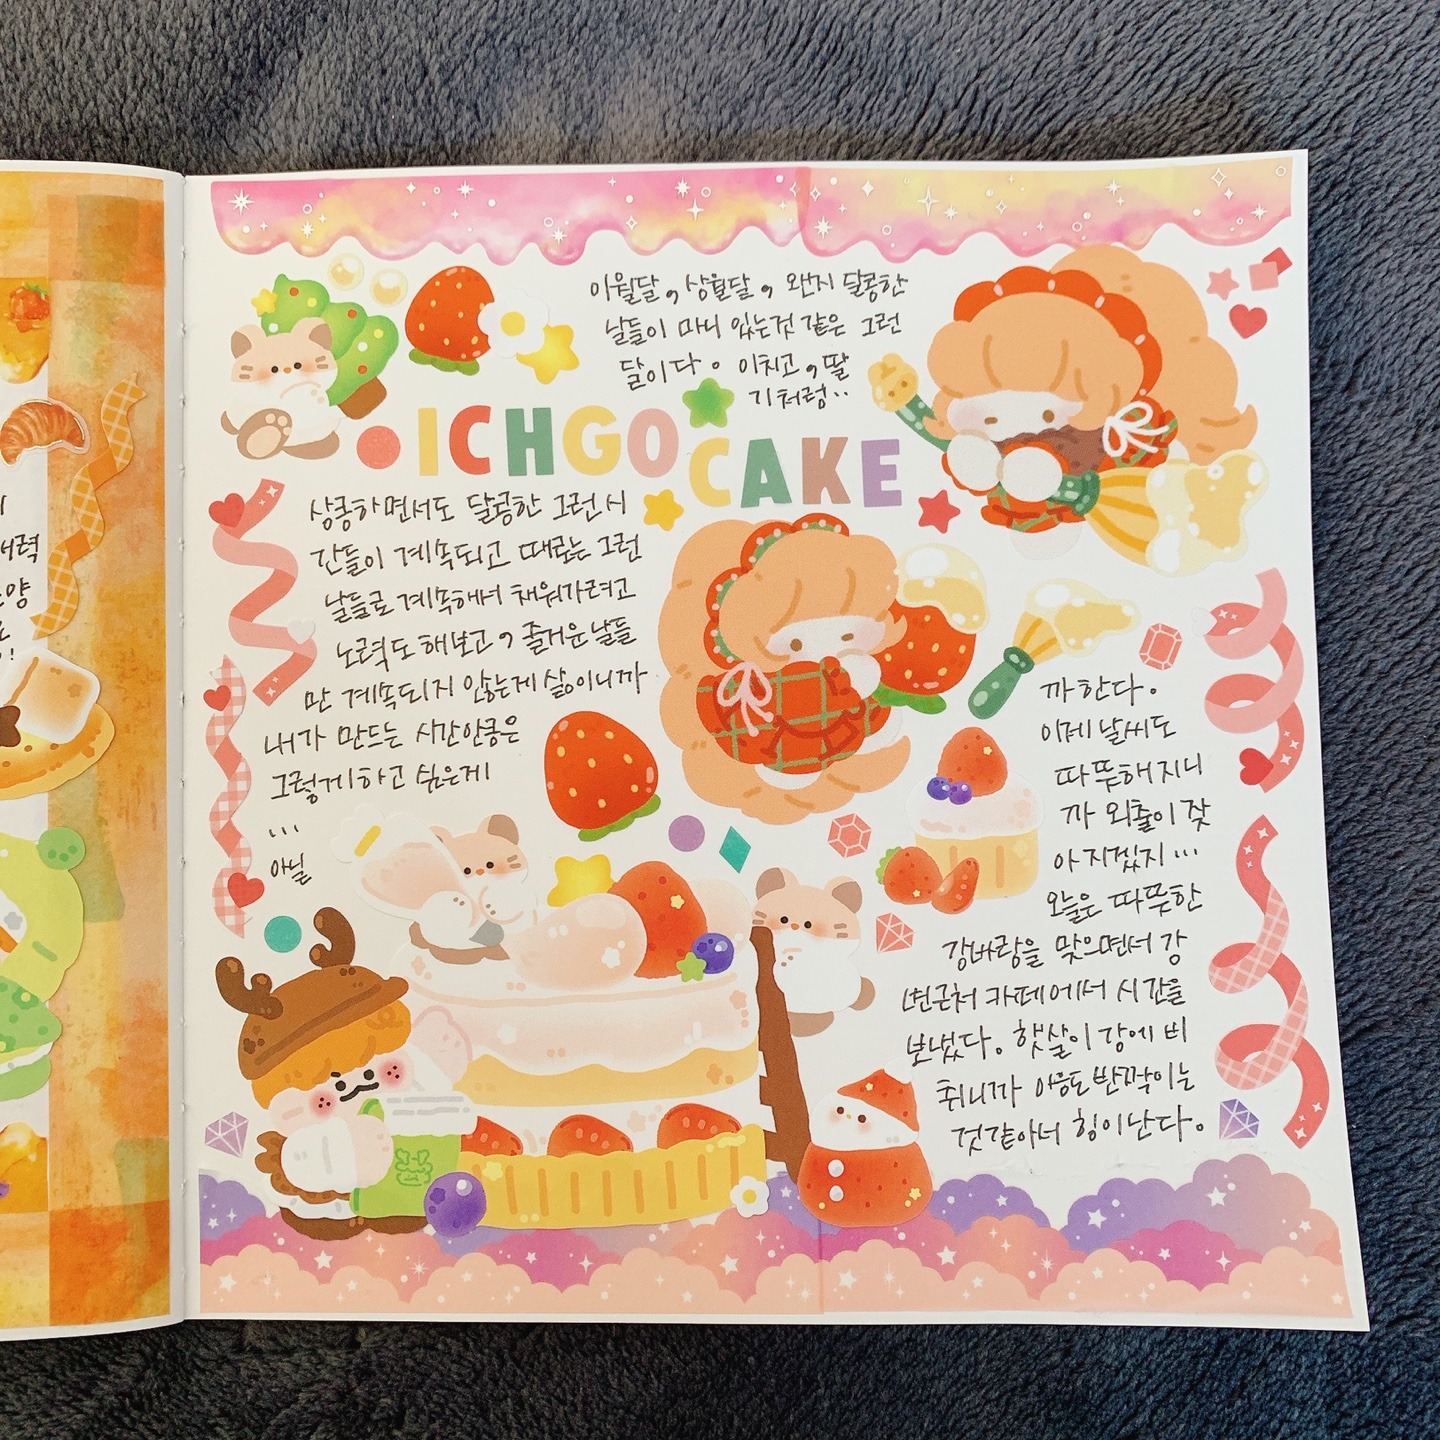 이월달, 삼월달, 왠지 달콤한
날들이 마니 있는것 같은 그런
달이다. 이치고, 딸
기처럼..
ICHGO CAKE
상콤하면서도 달콤한 그런 시
간들이 계속되고 때로는 그런
날들로 계속해서 채워가려고
노력도 해보고, 즐거운 날들
만 계속되지 않는게 삶이니까
내가 만드는 시간만큼은
그렇게하고 싶은게
...
아닐
까한다.
이제 날씨도
따뚯해지니
까 외출이 잦
아지겠지...
오늘은 따뜻한
강바람을 맞으면서 강
변근처 카페에서 시간을
보냈다. 햇살이 강에 비
취니까 마음도 반짝이는
것같아서 힘이난다.